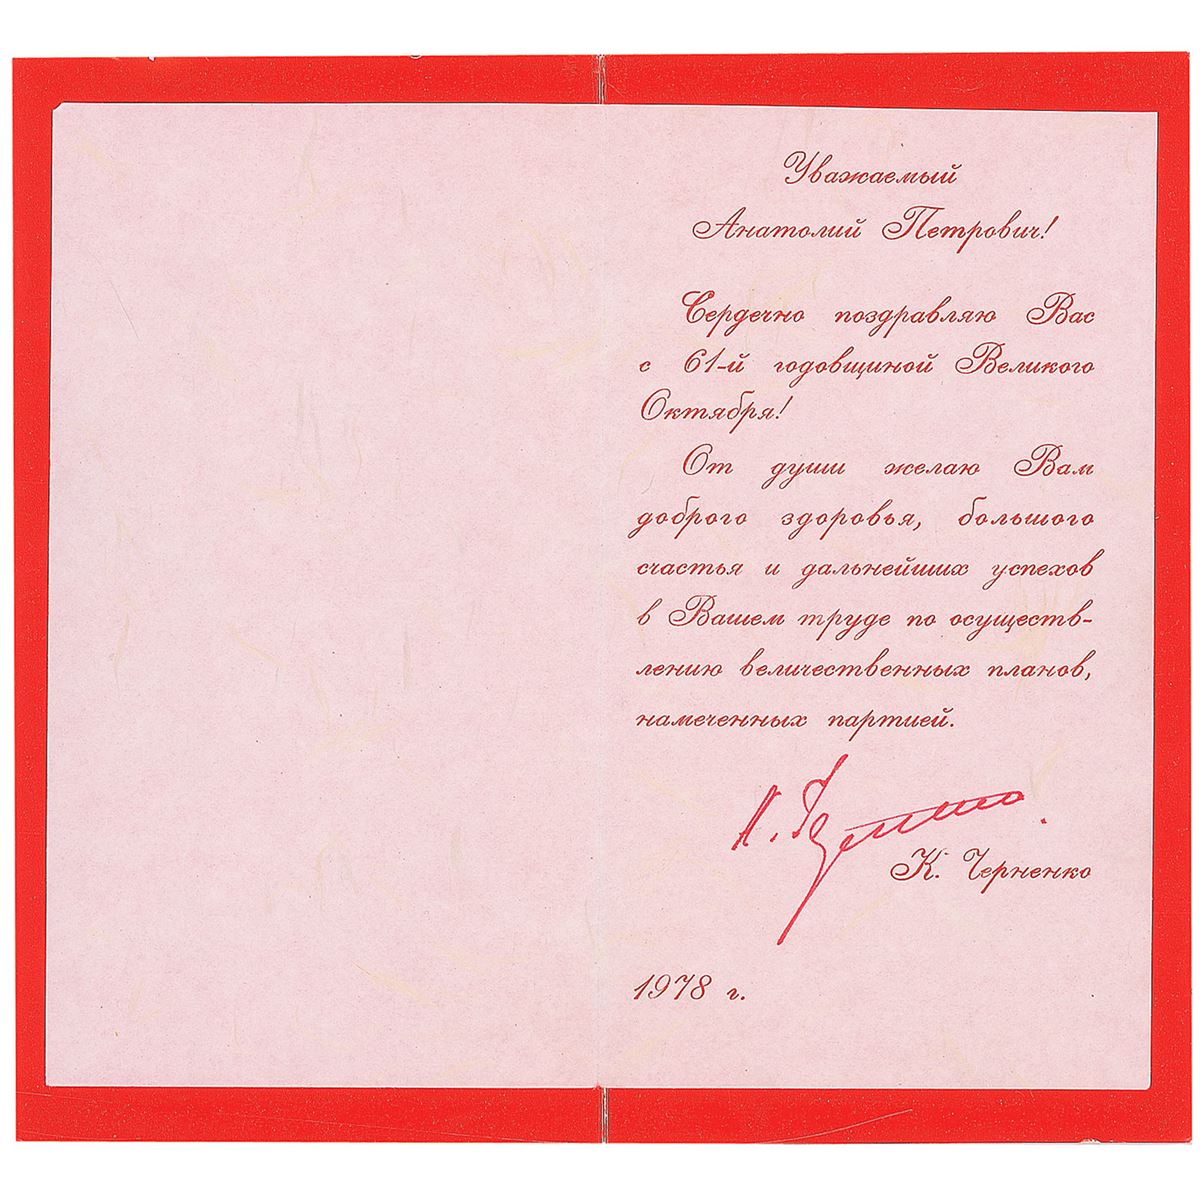 Уважаемый
Анатолий Петрович!
Сердечно поздравляю Вас
с 61-й годовщиной Великого
Октября!
От души желаю Вам
доброго здоровья, большого
счастья и дальнейших успехов
в Вашем труде по осуществ-
лению величественных планов,
намеченных партией.
К. Черненко
1978 г.